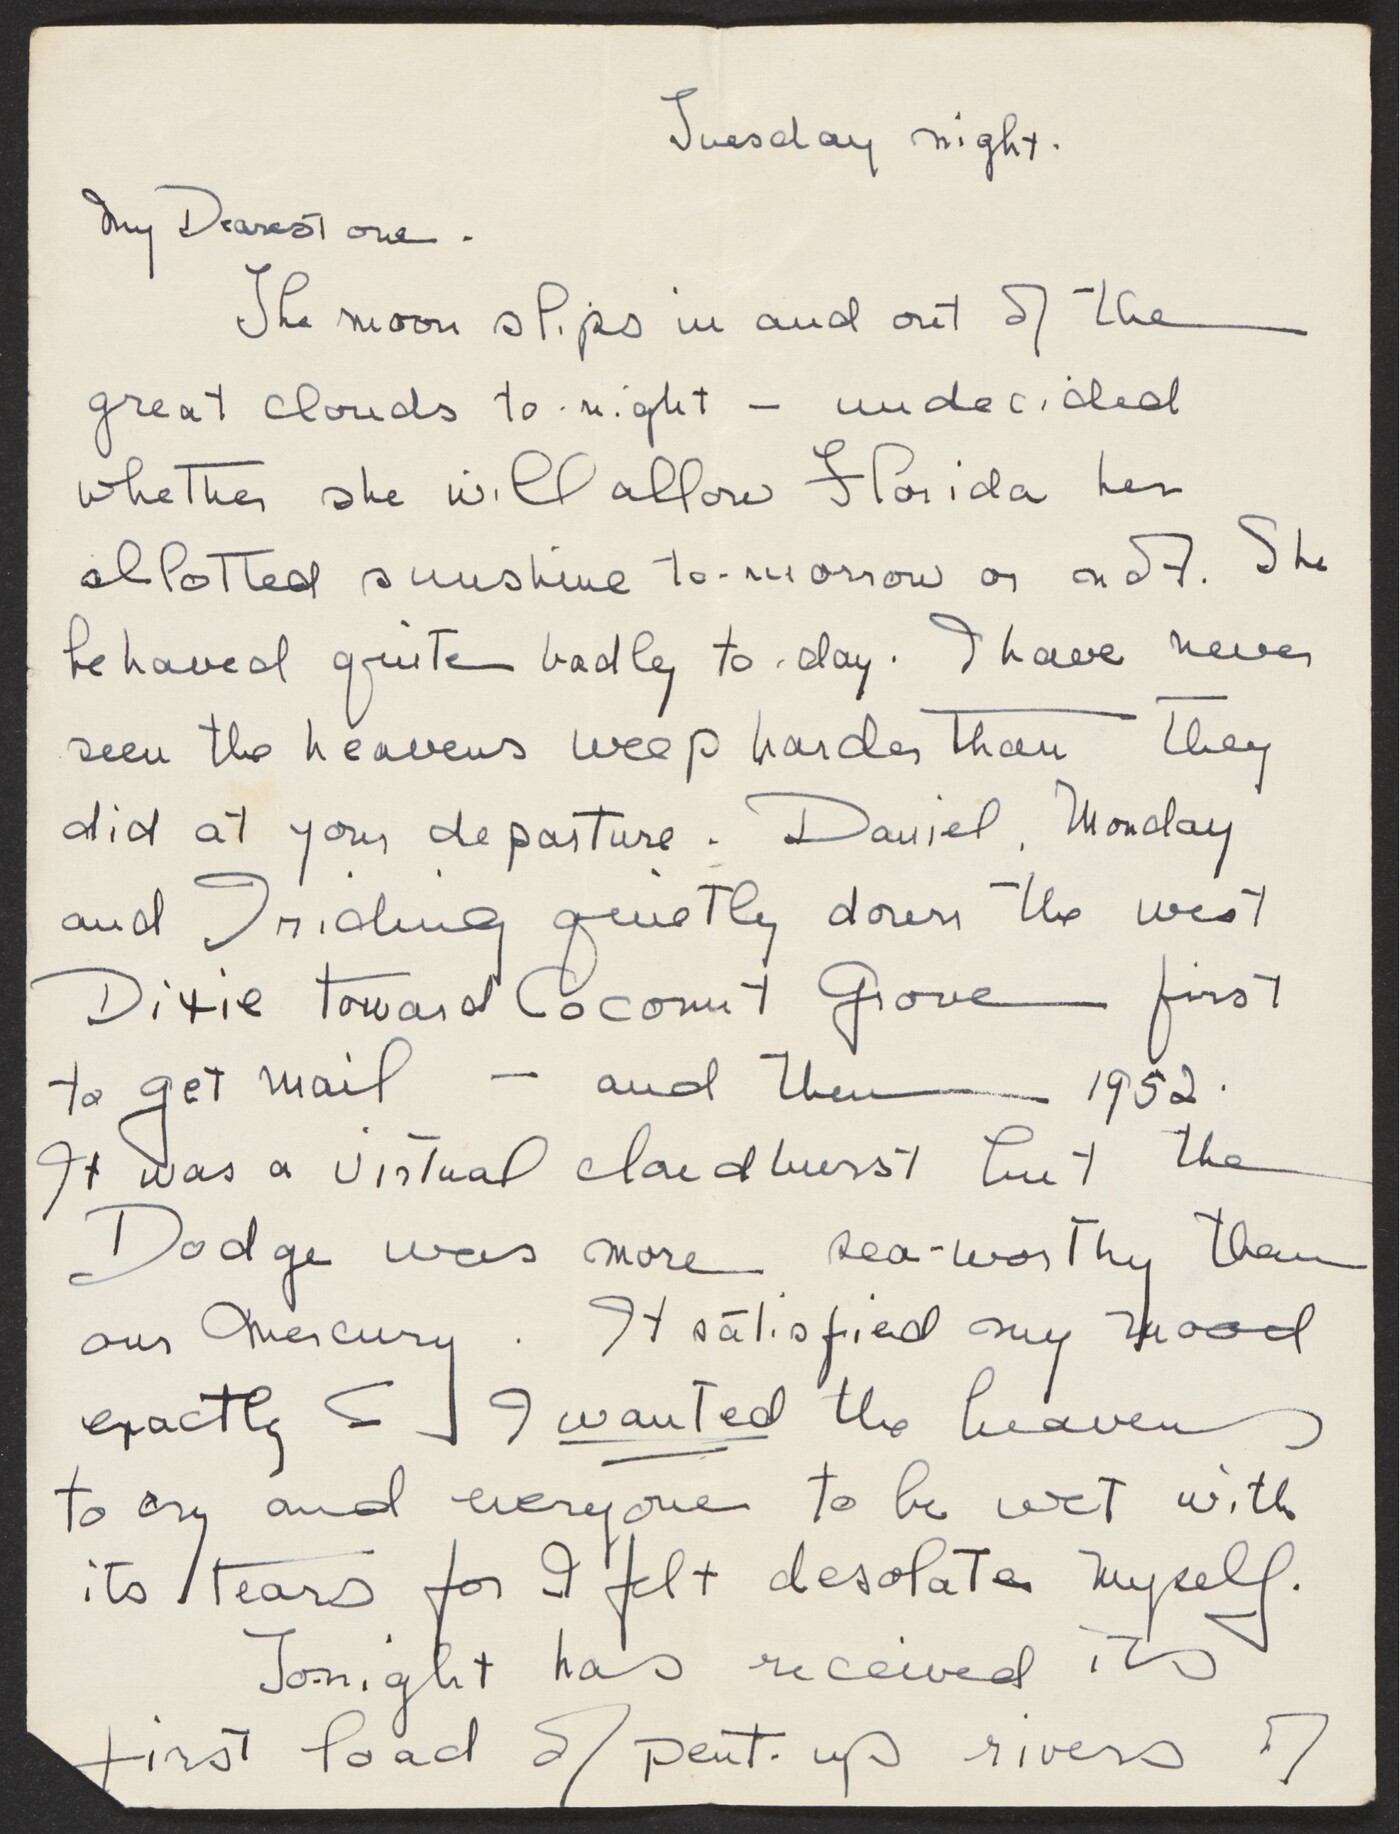 Tuesday night.
My Dearest one.
The moon slips in and out of the
great clouds to-night — undecided
whether she will allow Florida her
allotted sunshine to-morrow or not. She
behaved quite badly to-day. I have never
seen the heavens weep harder than they
did at your departure. Daniel, Monday
and I riding quietly down the west
Dixie toward Coconut Grove first
to get mail — and then 1952.
It was a virtual cloudburst but the
Dodge was more sea-worthy than
our Mercury. It satisfied my mood
exactly I wanted the heavens
to cry and everyone to be wet with
its tears for I felt desolate myself.
Tonight has received its
first load of pent-up rivers of